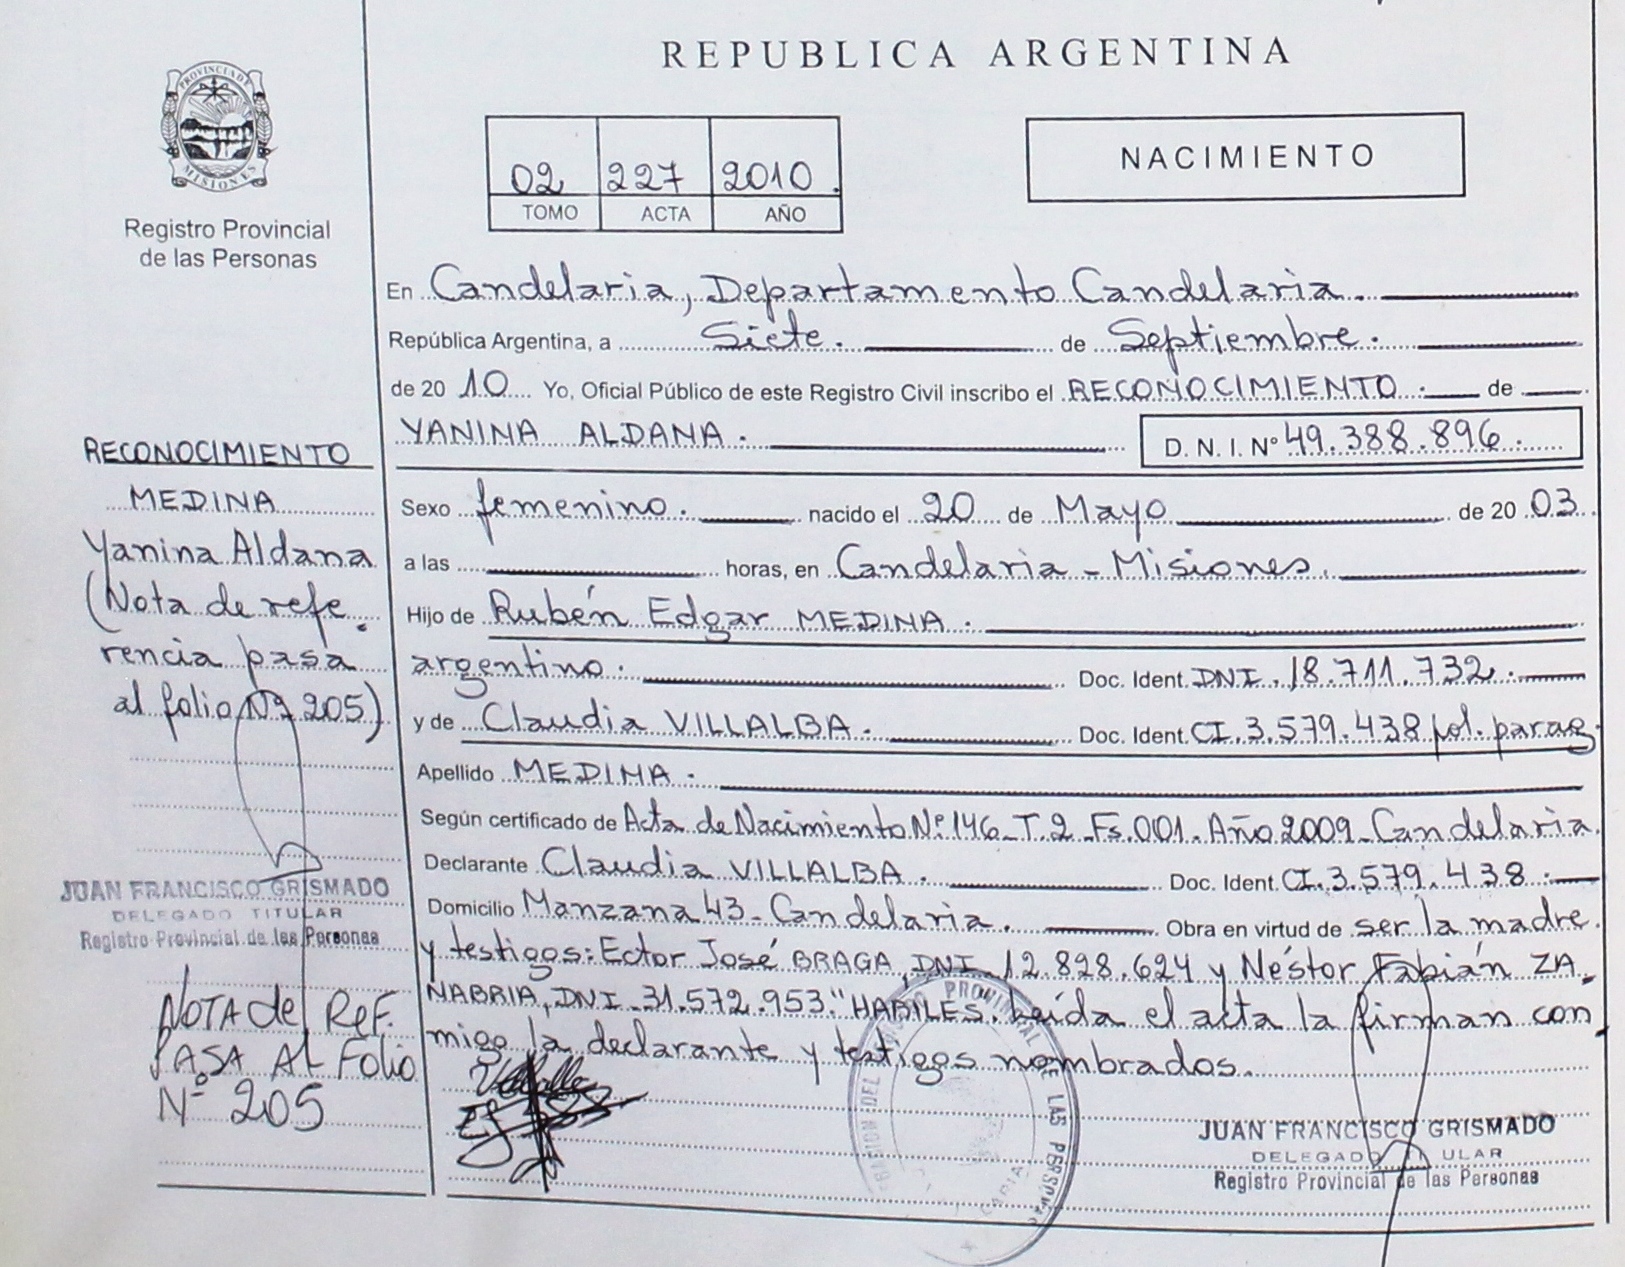 REPUBLICA ARGENTINA
PROVINCIA DE
MISIONES
Registro Provincial
de las Personas
02 227 2010.
TOMO ACTA AÑO
NACIMIENTO
En Candelaria, Departamento Candelaria.
República Argentina, a Siete. de Septiembre.
de 20 10 Yo, Oficial Público de este Registro Civil inscribo el RECONOCIMIENTO. de
YANINA ALDANA. D. N. I. Nº 49.388.896.
Sexo femenino. nacido el 20 de Mayo de 20 03.
a las horas, en Candelaria - Misiones.
Hijo de Rubén Edgar MEDINA.
argentino. Doc. Ident. DNI. 18.711.732.
y de Claudia VILLALBA. Doc. Ident. CI. 3.579.438 pol. parag.
Apellido MEDINA.
Según certificado de Acta de Nacimiento Nº 146 - T. 2 - Fs. 001. Año 2009 - Candelaria.
Declarante Claudia VILLALBA. Doc. Ident. CI. 3.579.438.
Domicilio Manzana 43 - Candelaria. Obra en virtud de ser la madre.
y testigos: Ector José BRAGA, DNI. 12.828.624 y Néstor Fabián ZA-
NABRIA, DNI. 31.572.953." HABILES. Leída el acta la firman con-
migo la declarante y testigos nombrados.
JUAN FRANCISCO GRISMADO
DELEGADO TITULAR
Registro Provincial de las Personas
RECONOCIMIENTO
MEDINA
Yanina Aldana
(Nota de refe-
rencia pasa
al folio Nº 205)
JUAN FRANCISCO GRISMADO
DELEGADO TITULAR
Registro Provincial de las Personas
NOTA de REF.
PASA AL Folio
Nº 205
PROVINCIAL DE LAS PERSONAS